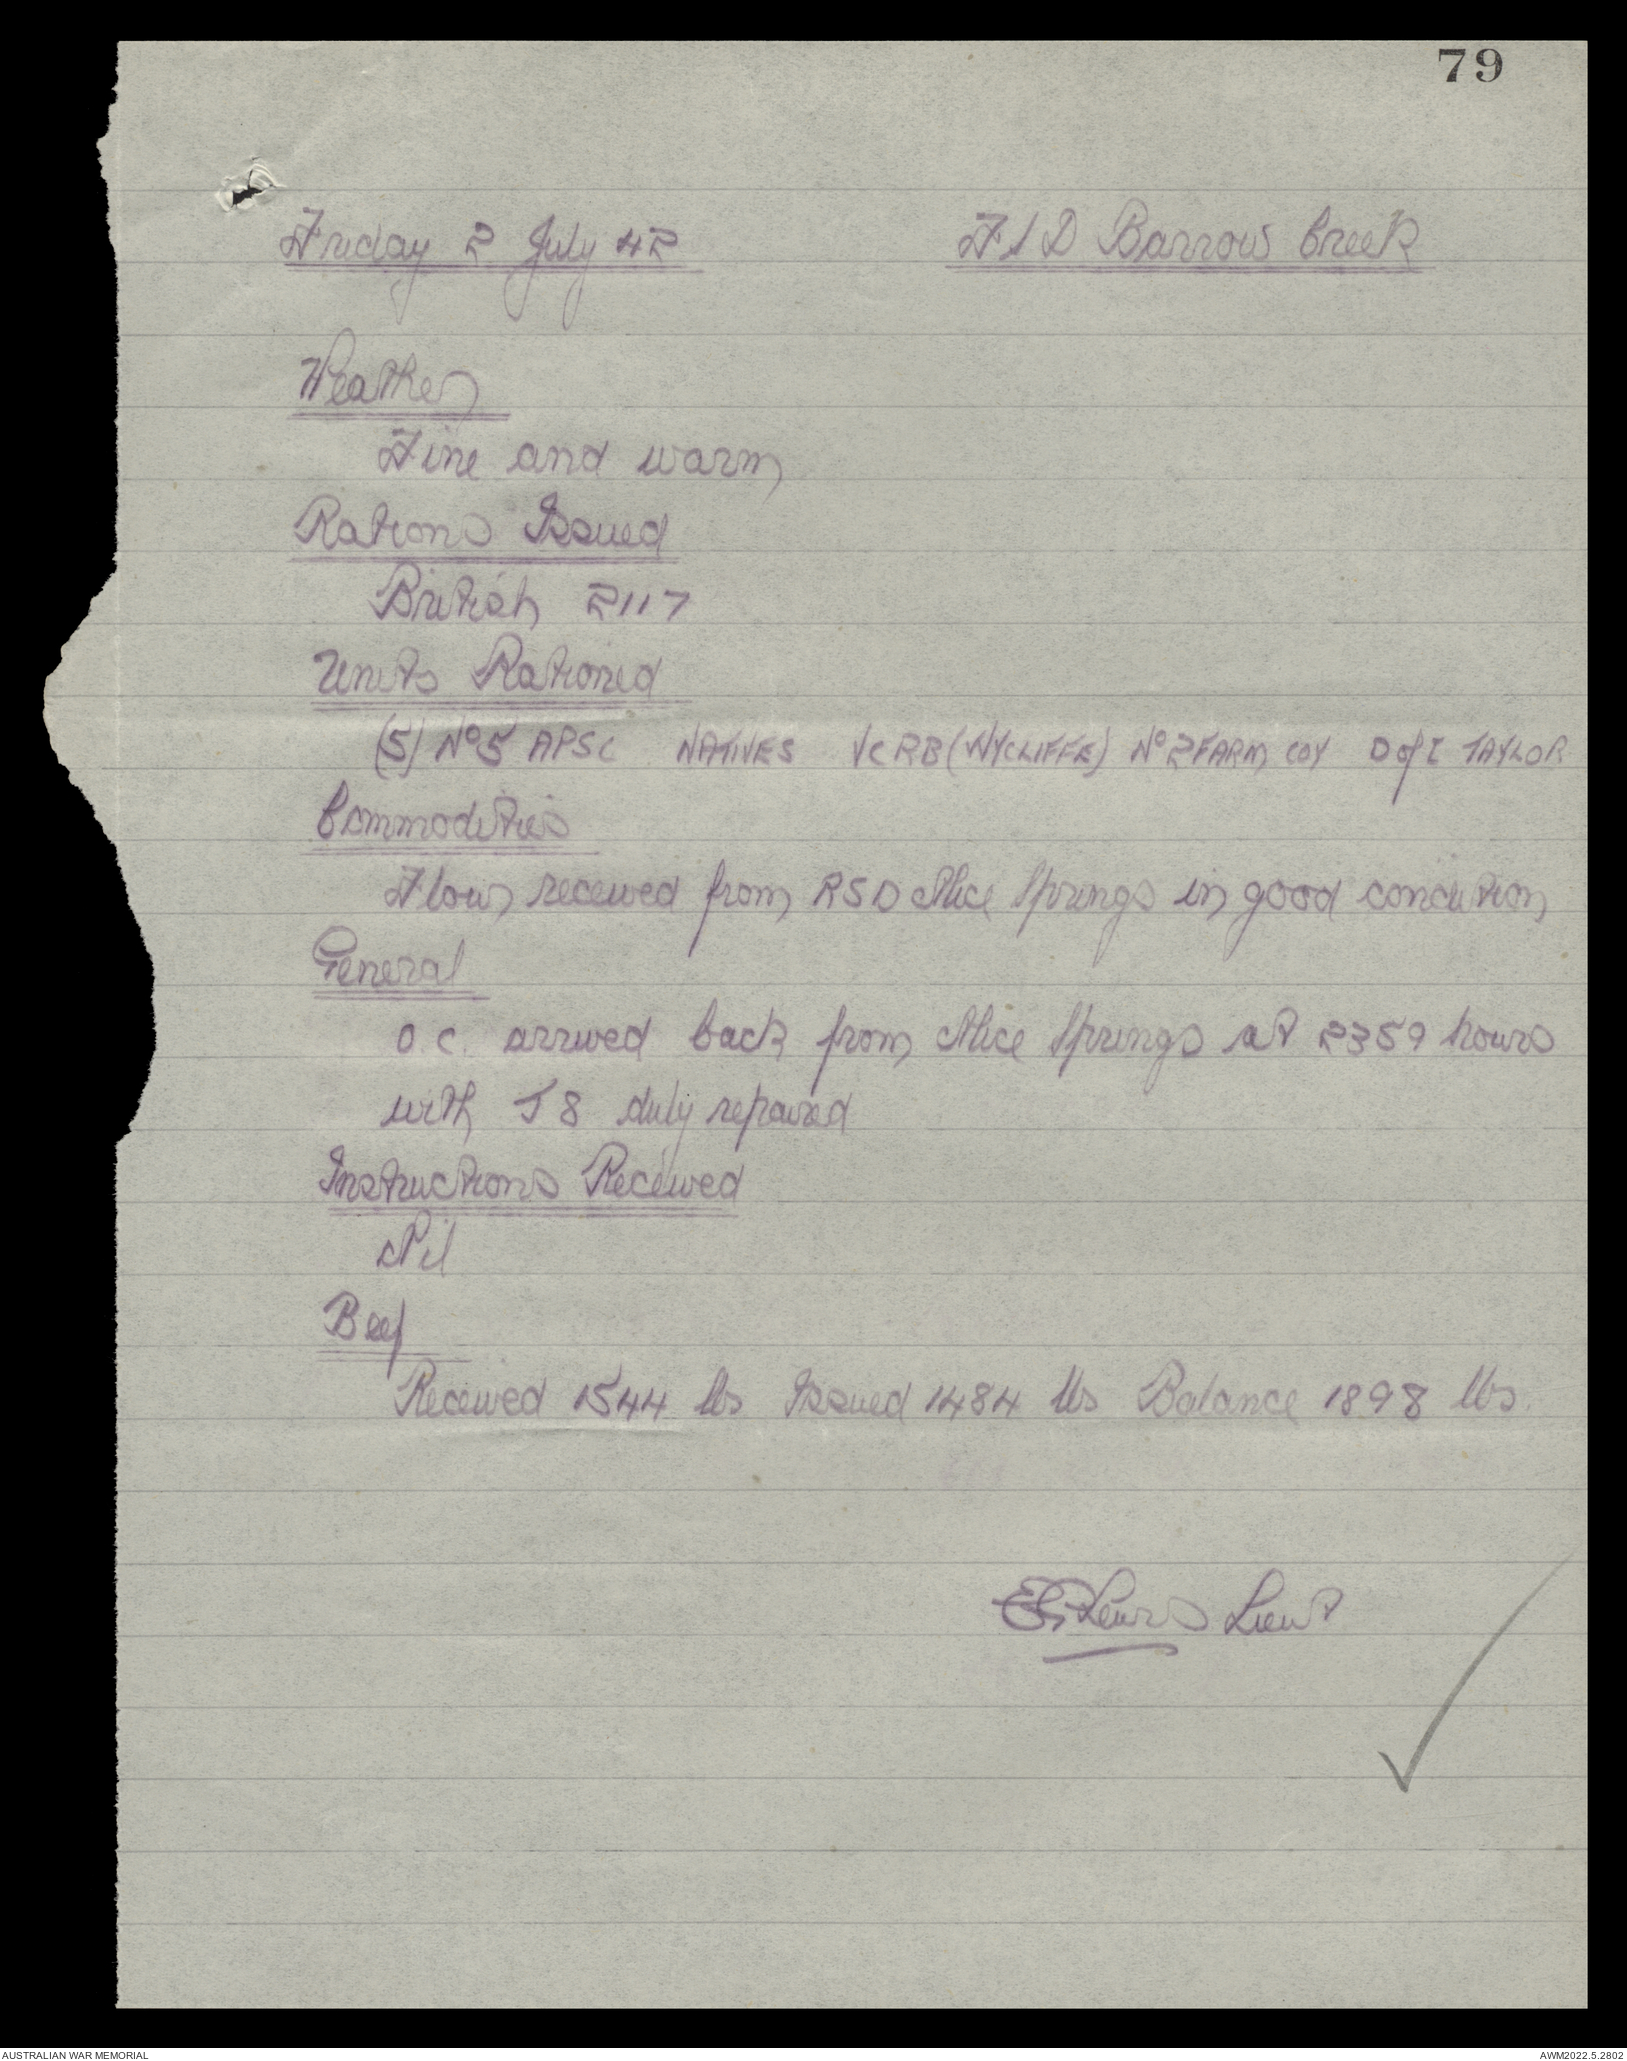 79
Friday 2 July 42 FSD Barrow Creek
Weather
Fine and warm
Rations Issued
British 2117
Units Rationed
(5) No 5 APSC NATIVES VCRB (WYCLIFFE) No 2 FARM COY D of I TAYLOR
Commodities
Flour received from RSD Alice Springs in good condition
General
O.C. arrived back from Alice Springs at 2359 hours
with T8 duly repaired
Instructions Received
Nil
Beef
Received 1544 lbs Issued 1484 lbs Balance 1898 lbs.
Lewis Lieut
AUSTRALIAN WAR MEMORIAL AWM2022.5.2802